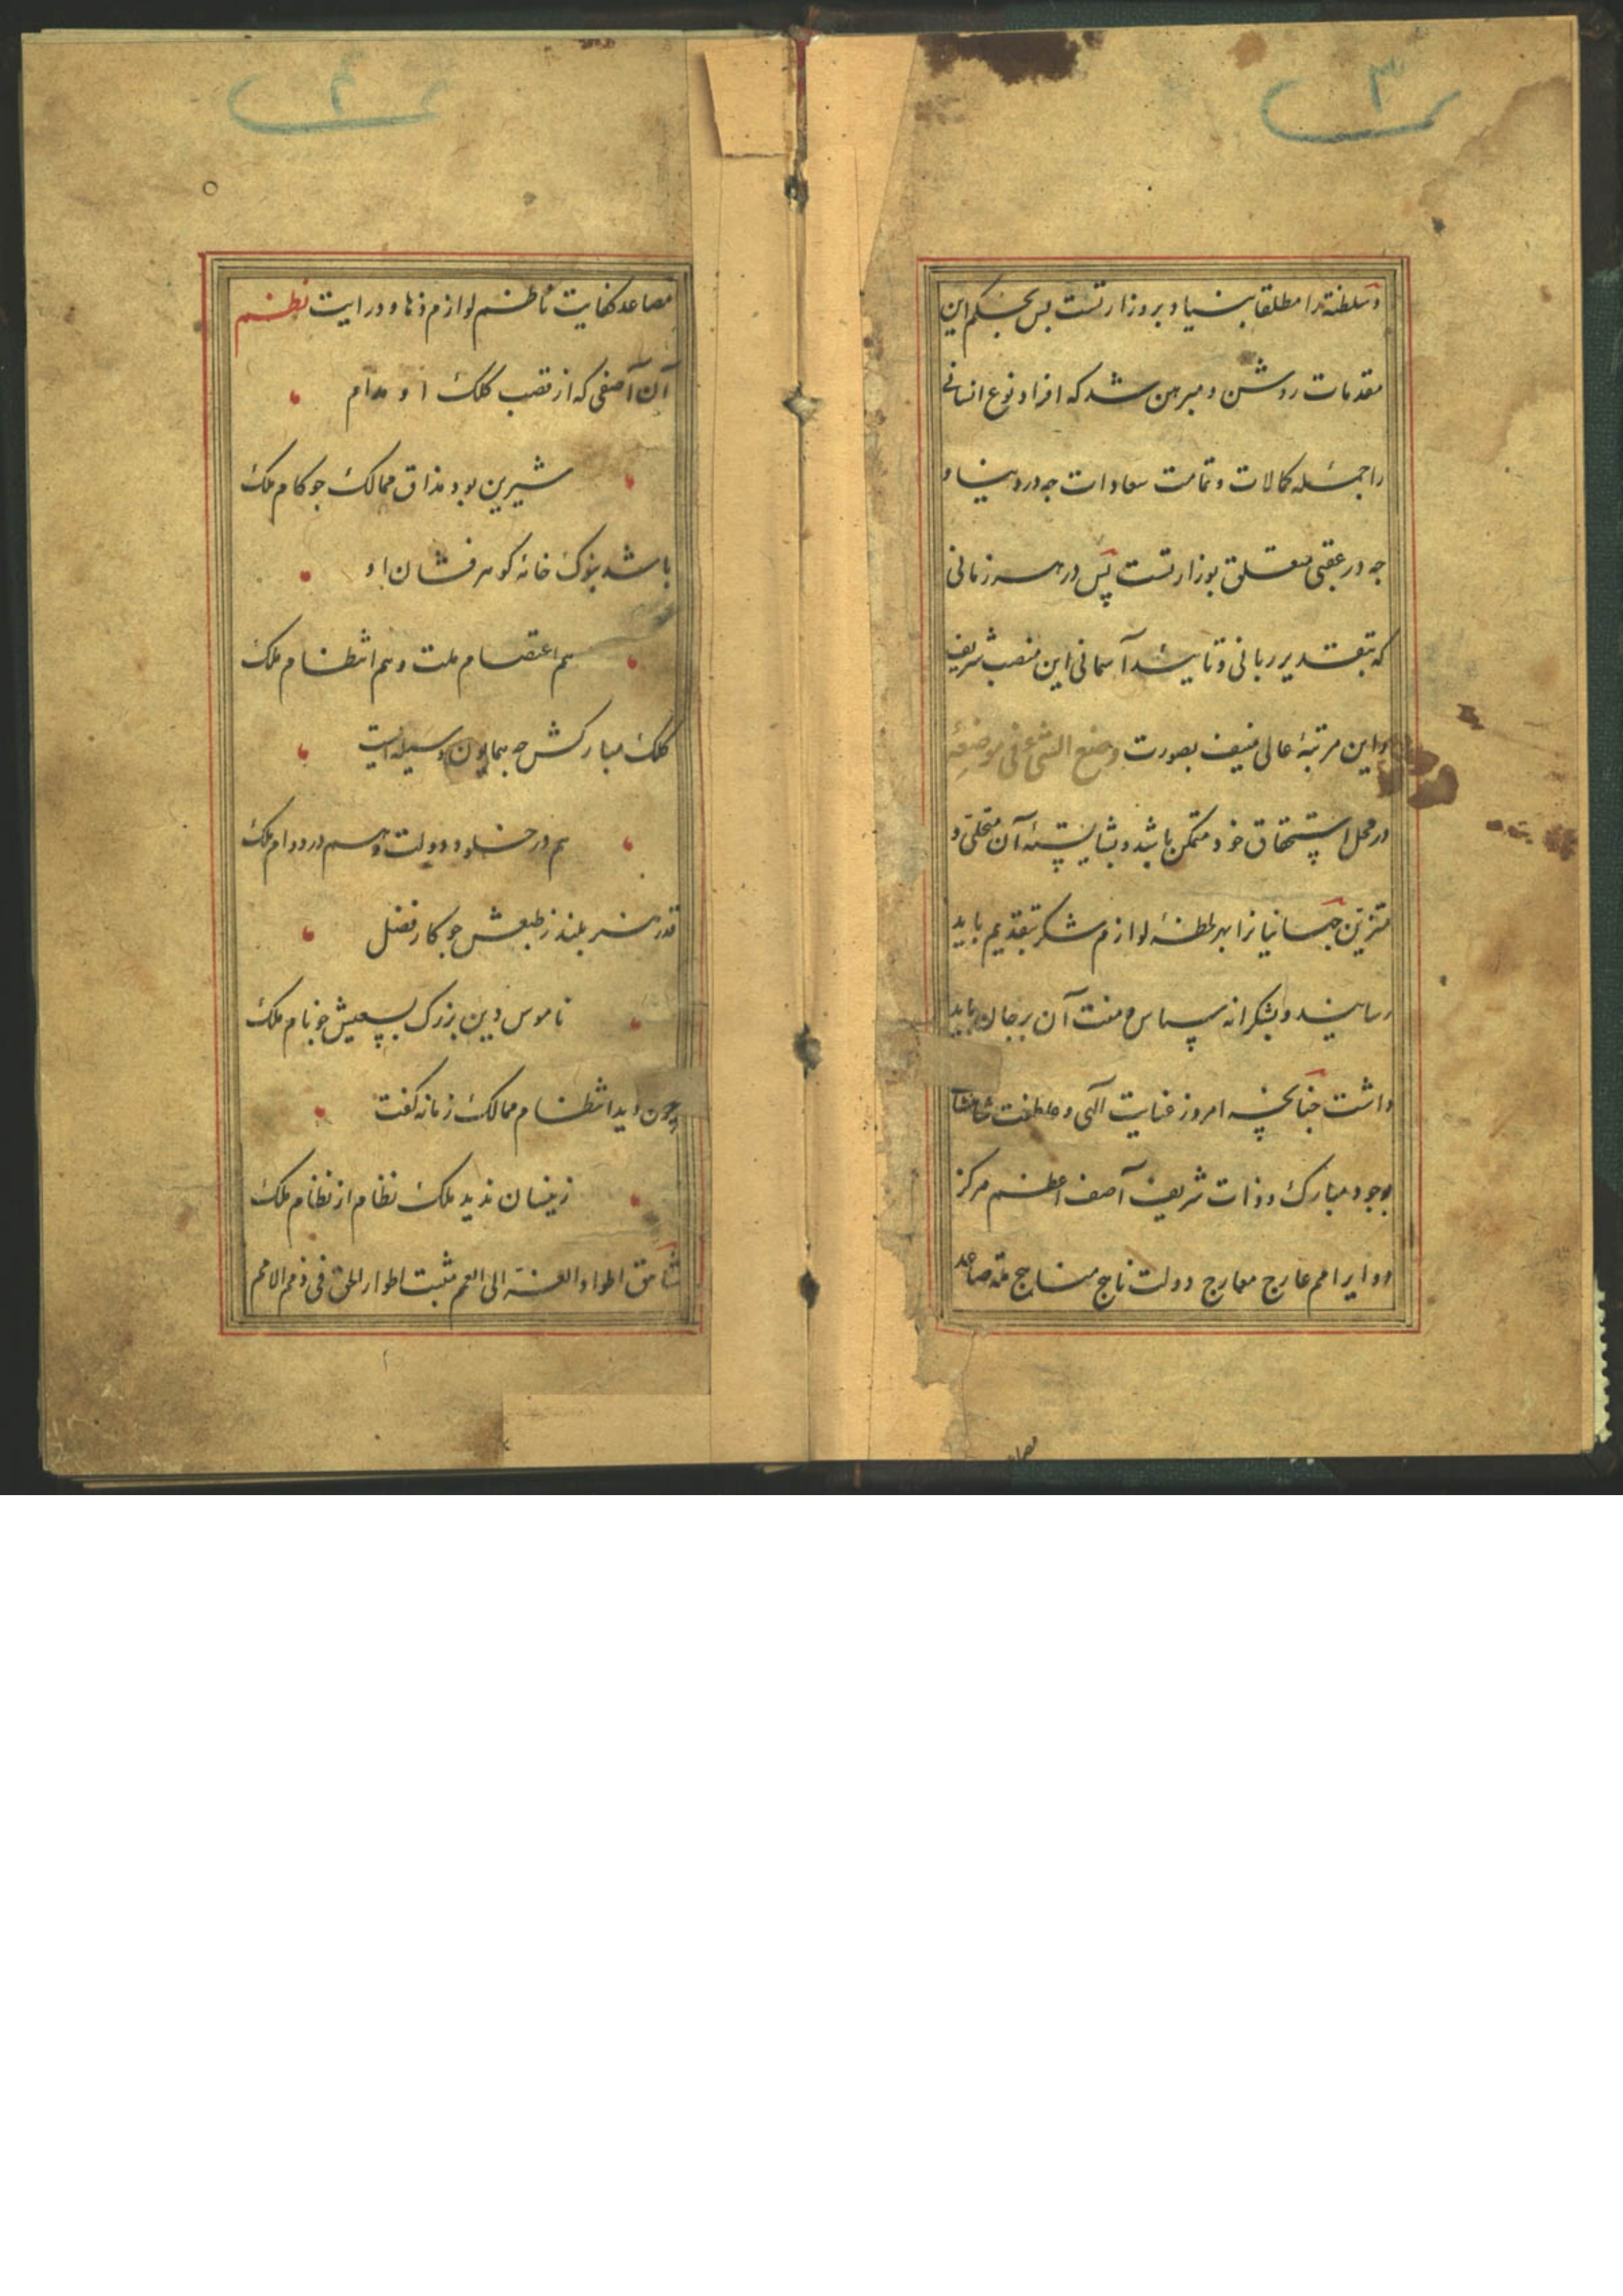 ۳
و سلطنة را مطلقا بنیاد بر وزارتست بس بحکم این
مقدمات روشن و مبرهن شد که افراد نوع انسانی
را جمله کمالات و تمامت سعادات جه در دنیا و
جه در عقبی متعلق بوزارتست پس در هر زمانی
که بتقدیر ربانی و تایید آسمانی این منصب شریف
و این مرتبهٔ عالی منیف بصورت وضع الشیء فی موضعه
در محل استحقاق خود متمکن باشد و بشایستهٔ آن متحلی و
متزین جهانیانرا بهر لحظهٔ لوازم شکر بتقدیم باید
رسانید و بشکرانه سپاس منت آن بر جان باید
داشت جنانجه امروز عنایت الهی و عاطفت شاهنشاهی
بوجود مبارک و ذات شریف آصف اعظم مرکز
دوایر امم عارج معارج دولت ناهج مناهج ملة صاعد
۴
مصاعد کفایت ناظم لوازم دها و درایت نظم
آن آصفی که از قصب کلک او مدام
شیرین بود مذاق ممالک جو کام ملک
باشد بنوک خامهٔ گوهرفشان او
هم اعتصام ملت و هم انتظام ملک
کلک مبارکش جه همایون وسیله ایست
هم در خلود دولت و هم در دوام ملک
قدر هنر بلند ز طبعش جو کار فضل
ناموس دین بزرگ بسعیش جو نام ملک
چون دید انتظام ممالک زمانه گفت
زینسان ندید ملک نظام از نظام ملک
شامق اطواد العزة الی القمم مثبت اطوار الحق فی ذمم الامم